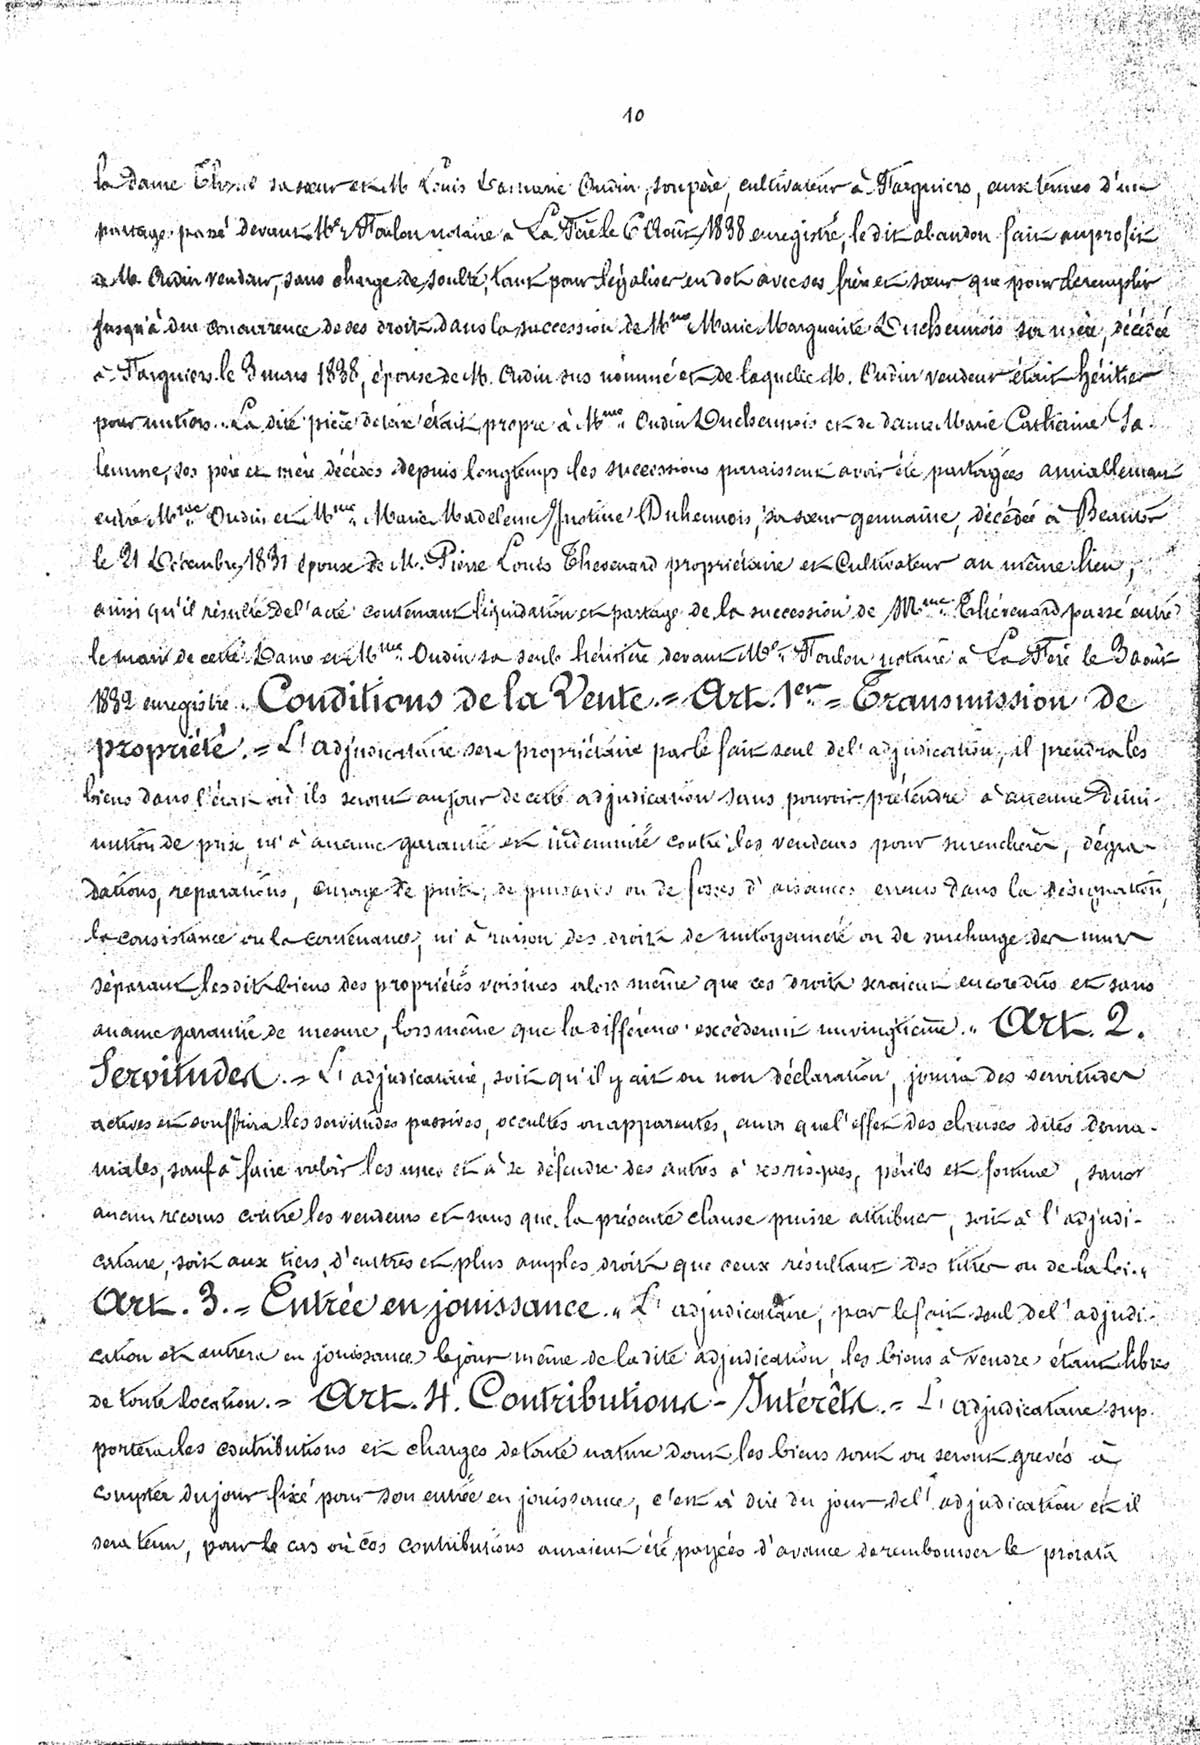 10
la dame sa sœur et M. Louis Oudin, son père, cultivateur à Fargniers, aux termes d'un
partage passé devant Me Foulon notaire à La Fère le 6 Août 1838 enregistré, le dit abandon fait au profit
de M. Oudin vendeur, sans charge de soulte, tant pour l'égaliser en dot avec ses frère et sœur que pour le remplir
jusqu'à due concurrence de ses droits dans la succession de Mme Marie Marguerite Duchennois sa mère, décédée
à Fargniers le 3 mars 1838, épouse de M. Oudin sus nommé et de laquelle M. Oudin vendeur était héritier
pour un tiers. La dite pièce de terre était propre à Mme Oudin Duchennois et de dame Marie Catherine
lemme, ses père et mère décédés depuis longtemps les successions paraissent avoir été partagées amiablement
entre Mme Oudin et Mme Marie Madeleine Justine Duhennois, sa sœur germaine, décédée à Beautor
le 21 Décembre 1831 épouse de M. Pierre Louis Thevenard propriétaire et Cultivateur au même lieu,
ainsi qu'il résulte de l'acte contenant liquidation et partage de la succession de Mme Thévenard passé entre
le mari de cette Dame et Mme Oudin sa seule héritière devant Me Foulon notaire à La Fère le 3 août
1832 enregistré. Conditions de la Vente. = Art. 1er = Transmission de
propriété. = L'adjudicataire sera propriétaire par le fait seul de l'adjudication, il prendra les
biens dans l'état où ils seront au jour de cette adjudication sans pouvoir prétendre à aucune dimi-
nution de prix, ni à aucune garantie et indemnité contre les vendeurs pour surenchère, dégra-
dations, réparations, curage de puits, de puisards ou de fosses d'aisances erreurs dans la désignation,
la consistance ou la contenance, ni à raison des droits de mitoyenneté ou de surcharge des murs
séparant lesdits biens des propriétés voisines alors même que ces droits seraient encore dûs et sans
aucune garantie de mesure, lors même que la différence excéderait un vingtième. Art. 2.
Servitudes. = L'adjudicataire, soit qu'il y ait ou non déclaration, jouira des servitudes
actives et souffrira les servitudes passives, occultes ou apparentes, ainsi que l'effet des clauses dites doma-
niales, sauf à faire valoir les unes et à se défendre des autres à ses risques, périls et fortune, sans
aucun recours contre les vendeurs et sans que la présente clause puisse attribuer, soit à l'adjudi-
cataire, soit aux tiers, d'autres et plus amples droits que ceux résultant des titres ou de la loi.
Art. 3. = Entrée en jouissance. L'adjudicataire, par le fait seul de l'adjudi-
cation et entrera en jouissance le jour même de la dite adjudication, les biens à vendre étant libres
de toute location. = Art. 4. Contributions - Intérêts. = L'adjudicataire sup-
portera les contributions et charges de toute nature dont les biens sont ou seront grevés à
compter du jour fixé pour son entrée en jouissance, c'est à dire du jour de l'adjudication et il
sera tenu, pour le cas où ces contributions auraient été payées d'avance de rembourser le prorata